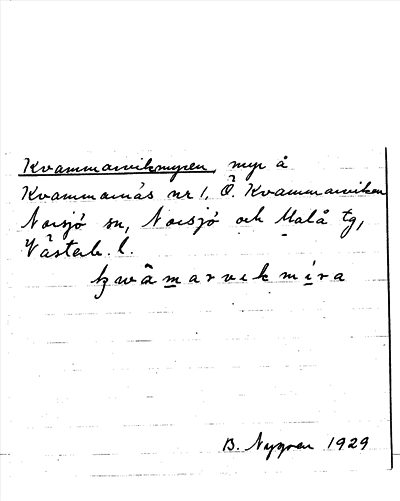 Kvammarvikmyren, myr å
Kvammarnäs nr 1, Ö. Kvammarviken
Norsjö sn, Norsjö och Malå tg,
Västerb. l.
kwämarvikmira
B. Nygren 1929